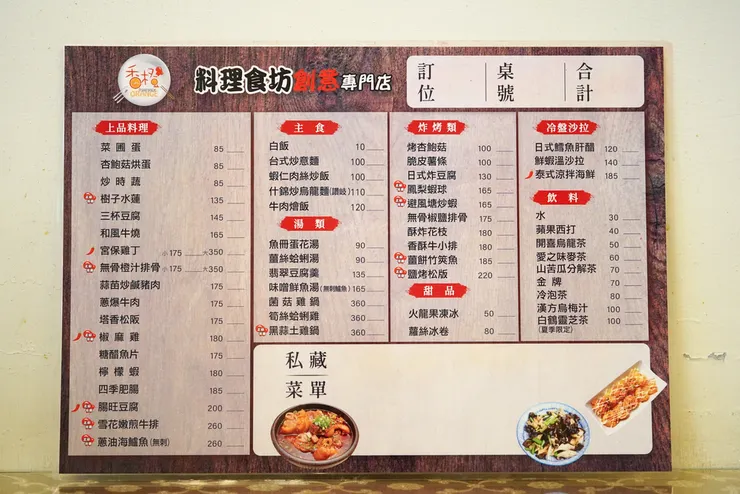 香橙
ORANGE
料理食坊創意專門店
訂位
桌號
合計
上品料理
菜圃蛋 85
杏鮑菇烘蛋 85
炒時蔬 85
樹子水蓮 135
三杯豆腐 145
和風牛燒 165
宮保雞丁 小175 大350
無骨橙汁排骨 小175 大350
蒜苗炒鹹豬肉 175
蔥爆牛肉 175
塔香松阪 175
椒麻雞 180
糖醋魚片 175
檸檬蝦 180
四季肥腸 185
腸旺豆腐 200
雪花嫩煎牛排 260
蔥油海鱸魚(無刺) 260
主食
白飯 10
台式炒意麵 100
蝦仁肉絲炒飯 100
什錦炒烏龍麵(讚岐) 110
牛肉燴飯 120
湯類
魚冊蛋花湯 90
薑絲蛤蜊湯 90
翡翠豆腐羹 135
味噌鮮魚湯(無刺鱸魚) 165
菌菇雞鍋 360
筍絲蛤蜊雞 360
黑蒜土雞鍋 360
炸烤類
烤杏鮑菇 100
脆皮薯條 100
日式炸豆腐 130
鳳梨蝦球 165
避風塘炒蝦 165
無骨椒鹽排骨 175
酥炸花枝 180
香酥牛小排 180
薑餅竹筴魚 180
鹽烤松版 220
甜品
火龍果凍冰 50
蘿絲冰卷 80
冷盤沙拉
日式鱈魚肝醋 120
鮮蝦溫沙拉 140
泰式涼拌海鮮 185
飲料
水 30
蘋果西打 40
開喜烏龍茶 50
愛之味麥茶 60
山苦瓜分解茶 70
金牌 70
冷泡茶 80
漢方烏梅汁 100
白鶴靈芝茶 100
(夏季限定)
私藏
菜單